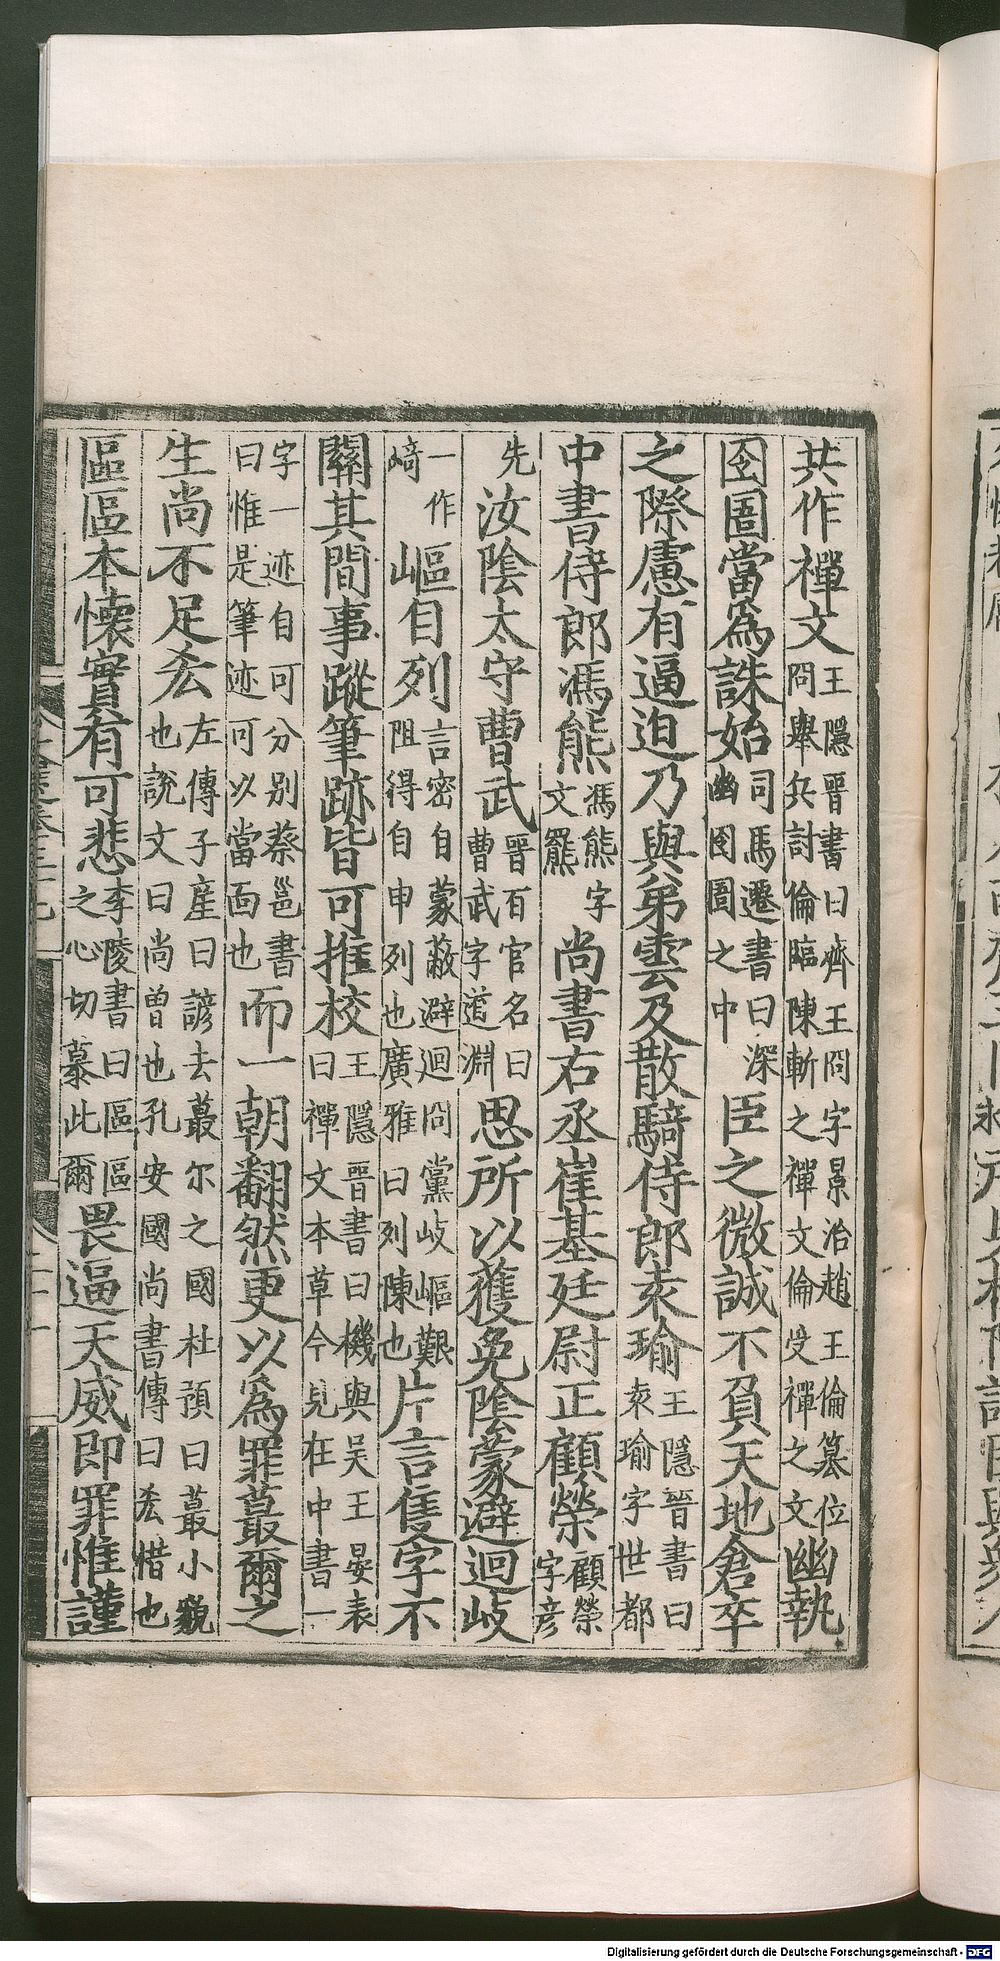 共作禪文王隱晉書曰齊王冏字景治趙王倫篡位冏舉兵討倫臨陳斬之禪文倫受禪之文幽執
囹圄當爲誅始司馬遷書曰深幽囹圄之中臣之微誠不負天地倉卒
之際慮有逼迫乃與弟雲及散騎侍郎袁瑜王隱晉書曰袁瑜字世都
中書侍郎馮熊馮熊字文羆尚書右丞崔基廷尉正顧榮顧榮字彦
先汝陰太守曹武晉百官名曰曹武字道淵思所以獲免陰蒙避迴岐
一作﨑嶇自列言密自蒙蔽避迴冏黨岐嶇艱阻得自申列也廣雅曰列陳也片言隻字不
關其間事蹤筆跡皆可推校王隱晉書曰機與吴王晏表曰禪文本草今見在中書一
字一迹自可分別蔡邕書曰惟是筆迹可以當面也而一朝翻然更以爲罪蕞爾之
生尚不足𠫤左傳子產曰諺去蕞尔之國杜預曰蕞小貌也說文曰尚曾也孔安國尚書傳曰𠫤惜也
區區本懷實有可悲李陵書曰區區之心切慕此爾畏逼天威即罪惟謹
Digitalisierung gefördert durch die Deutsche Forschungsgemeinschaft - DFG